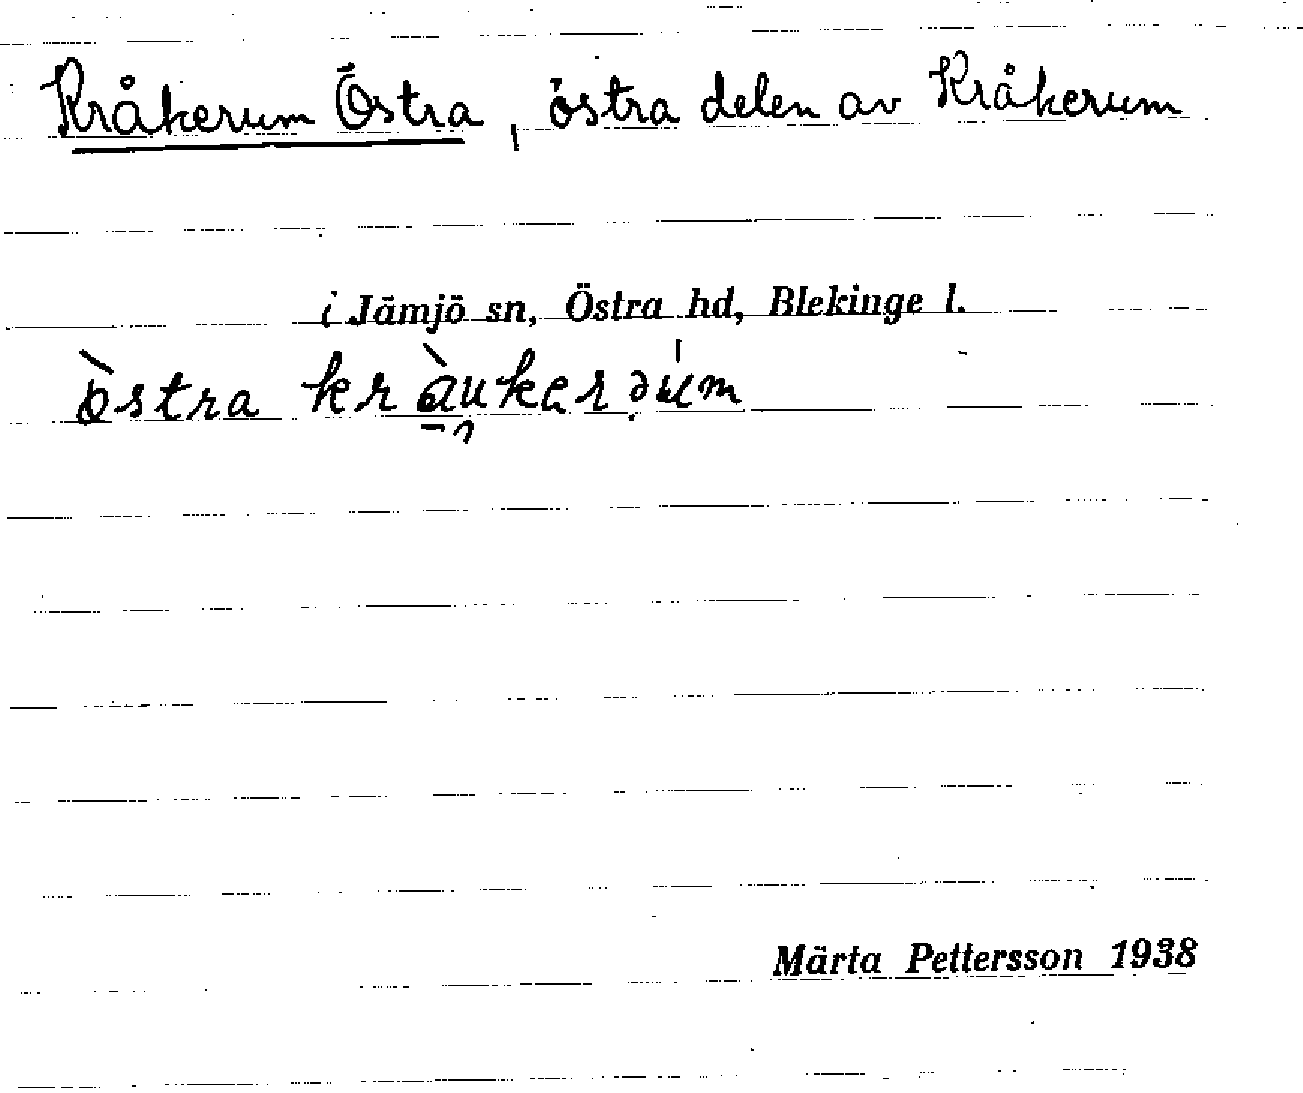 Kråkerum Östra, östra delen av Kråkerum
i Jämjö sn, Östra hd, Blekinge l.
östra
Märta Pettersson 1938